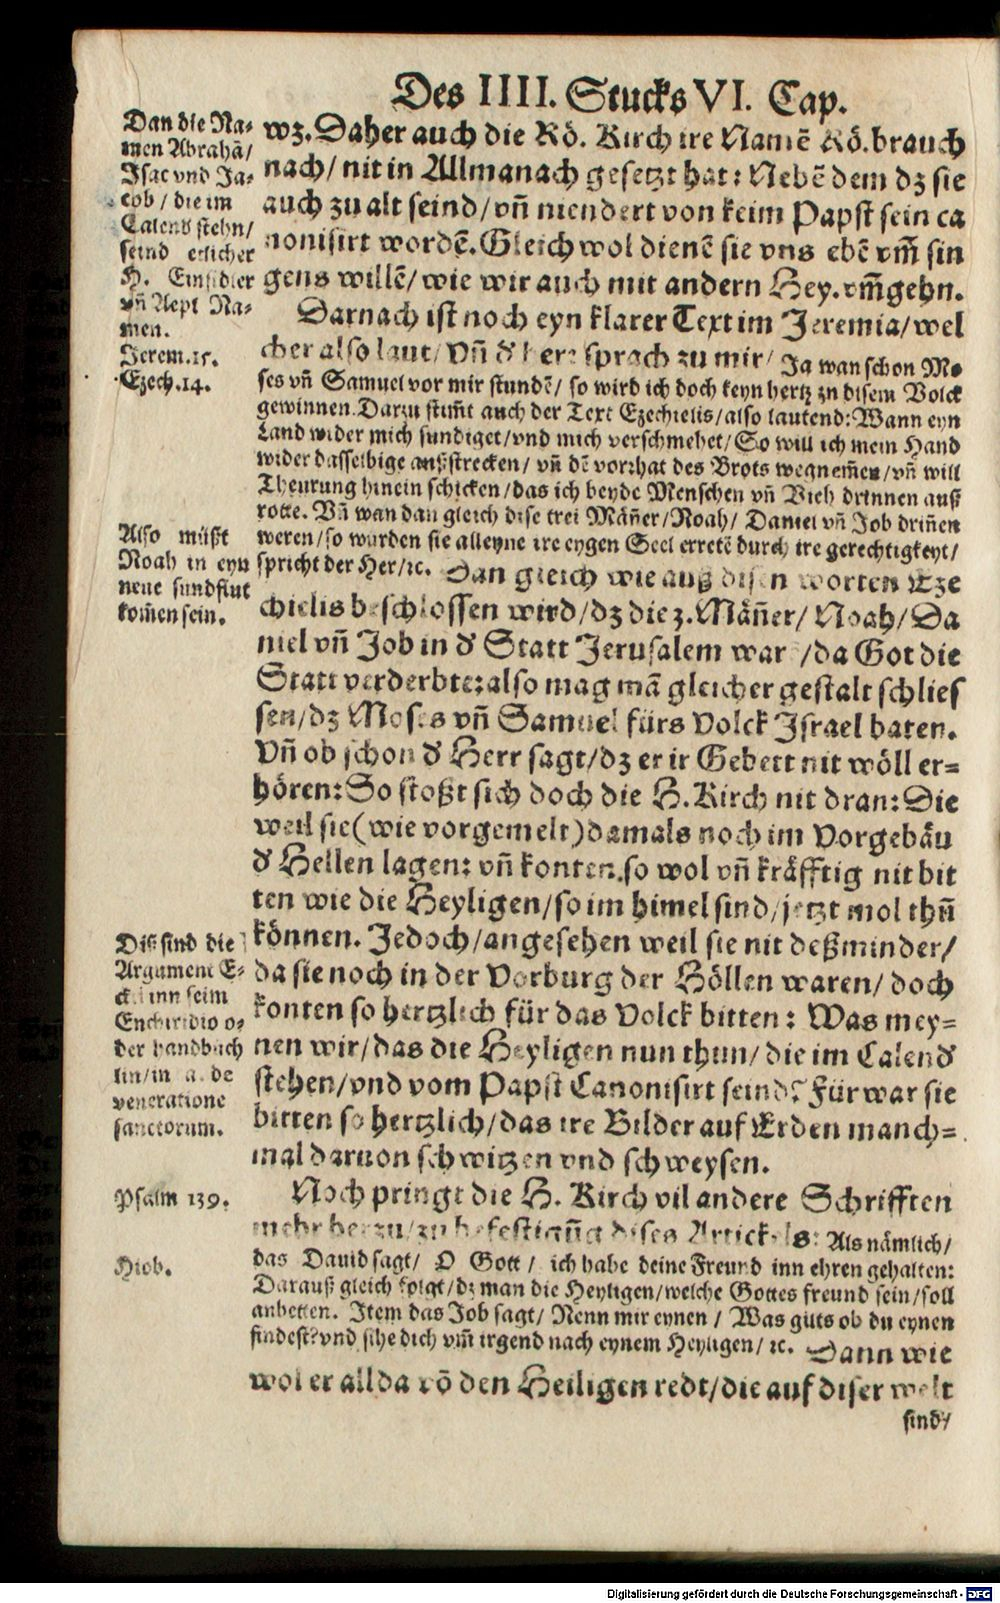 Des IIII. Stucks VI. Cap.
Dan die Na-
men Abrahã/
Isac vnd Ja-
cob / die im
Calend stehn/
seind etlicher
H. Einsidler
vñ Aept Na-
men.
Jerem.15.
Ezech.14.
wz. Daher auch die Rö. Kirch ire Namẽ Rö. brauch
nach/ nit in Allmanach gesetzt hat: Nebẽ dem dz sie
auch zu alt seind/ vñ niendert von keim Papst sein ca
nonisirt wordẽ. Gleich wol dienẽ sie vns ebẽ vm̃ sin
gens willẽ/ wie wir auch mit andern Hey. vm̃gehn.
Darnach ist noch eyn klarer Text im Jeremia/ wel
cher also laut/ Vñ d' herr sprach zu mir/ Ja wan schon Mo
ses vñ Samuel vor mir stundẽ/ so wird ich doch keyn hertz zu disem Volck
gewinnen. Darzu stim̃t auch der Text Ezechielis/ also lautend: Wann eyn
Land wider mich sundiget/ vnd mich verschmehet/ So will ich mein Hand
wider dasselbige außstrecken/ vñ dẽ vorrhat des Brots wegnem̃en/ vñ will
Theurung hinein schicken/ das ich beyde Menschen vñ Vieh drinnen auß
rotte. Vñ wan dan gleich dise trei Mäñer/ Noah/ Daniel vñ Job driñen
weren/ so wurden sie alleyne ire eygen Seel erretẽ durch ire gerechtigkeyt/
spricht der Her/ ꝛc. Dan gleich wie auß disen worten Eze
chielis beschlossen wird/ dz die 3. Mäñer/ Noah/ Da
niel vñ Job in d' Statt Jerusalem war/ da Got die
Statt verderbte: also mag mã gleicher gestalt schlies
sen/ dz Moses vñ Samuel fürs Volck Israel baten.
Vñ ob schon d' Herr sagt/ dz er ir Gebett nit wöll er-
hören: So stoßt sich doch die H. Kirch nit dran: Die
weil sie (wie vorgemelt) damals noch im Vorgebäu
d' Hellen lagen: vñ konten so wol vñ kräfftig nit bit
ten wie die Heyligen/ so im himel sind/ jetzt mol thũ
können. Jedoch/ angesehen weil sie nit deßminder/
da sie noch in der Vorburg der Höllen waren/ doch
konten so hertzlich für das Volck bitten: Was mey-
nen wir/ das die Heyligen nun thun/ die im Calend'
stehen/ vnd vom Papst Canonisirt seind? Fürwar sie
bitten so hertzlich/ das ire Bilder auf Erden manch-
mal daruon schwitzen vnd schweysen.
Also müßt
Noah in eyn
neue sundflut
kom̃en sein.
Diß sind die
Argument E-
ckii inn seim
Enchiridio o-
der handbüch
lin/ in de
veneratione
sanctorum.
Noch pringt die H. Kirch vil andere Schrifften
mehr herzu/ zu befestigũg dises Artickels: Als nämlich/
das Dauid sagt/ O Gott/ ich habe deine Freund inn ehren gehalten:
Darauß gleich folgt/ dz man die Heyligen/ welche Gottes freund sein/ soll
anbetten. Item das Job sagt/ Nenn mir eynen/ Was gilts ob du eynen
findest? vnd sihe dich vm̃ irgend nach eynem Heyligen/ ꝛc. Dann wie
wol er allda võ den Heiligen redt/ die auf diser welt
Psalm 139.
Hiob.
sind/
Digitalisierung gefördert durch die Deutsche Forschungsgemeinschaft - DFG